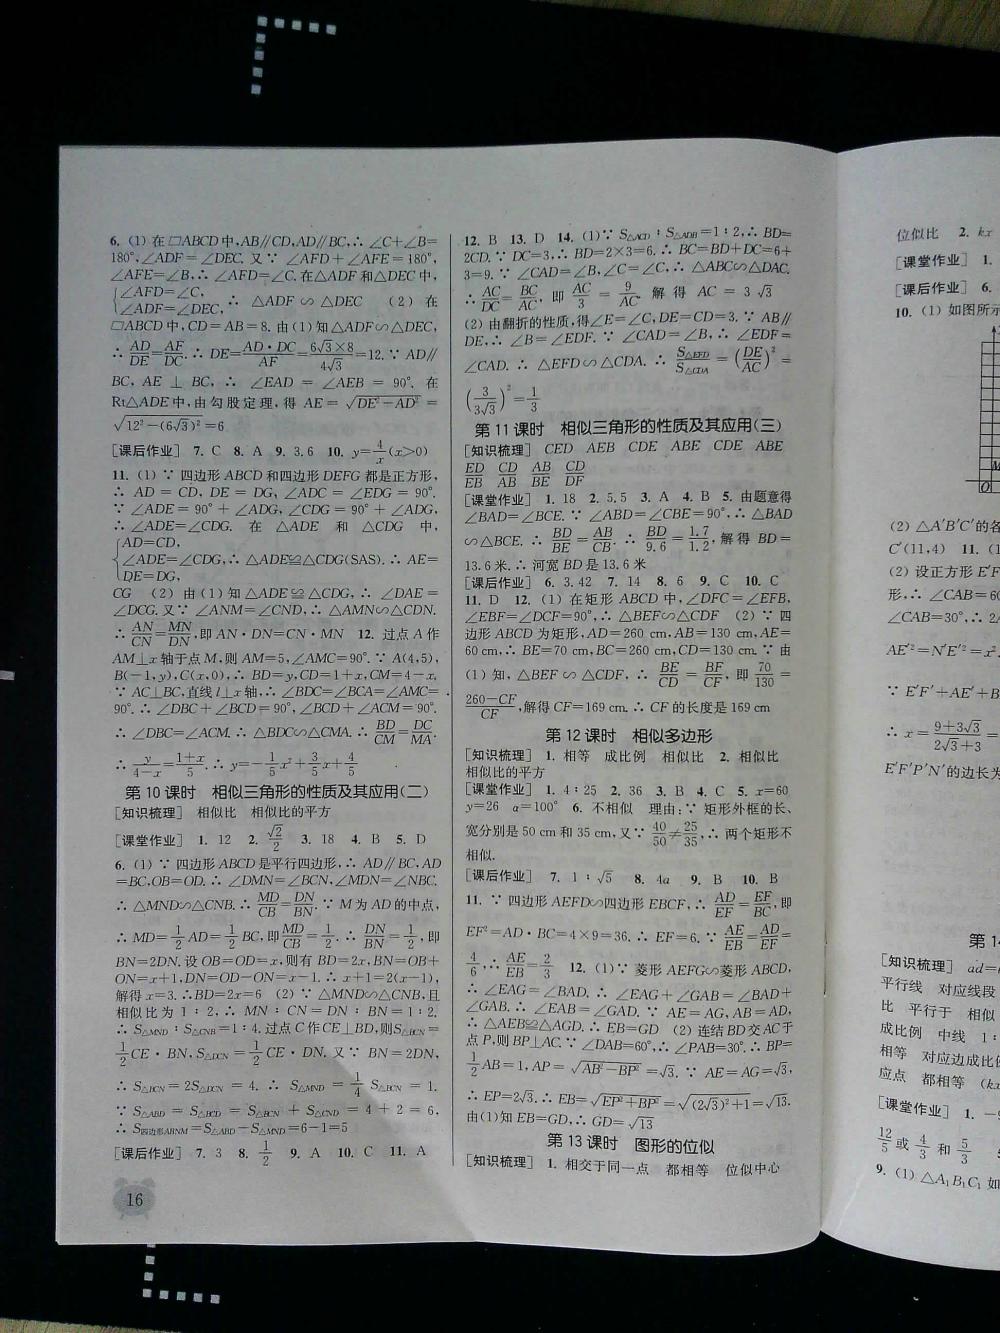 6. (1) 在□ABCD中,AB∥CD,AD∥BC,∴ ∠C+∠B=
180°,∠ADF=∠DEC. 又∵ ∠AFD+∠AFE=180°,
∠AFE=∠B,∴ ∠AFD=∠C. 在△ADF和△DEC中,
{∠AFD=∠C,
∠ADF=∠DEC, ∴ △ADF∽△DEC (2) 在
□ABCD中,CD=AB=8. 由(1)知△ADF∽△DEC,
∴ AD/DE=AF/DC. ∴ DE=AD·DC/AF=6√3×8/4√3=12. ∵ AD∥
BC, AE⊥BC, ∴ ∠EAD=∠AEB=90°. 在
Rt△ADE中,由勾股定理,得 AE=√(DE²-AD²)=
√(12²-(6√3)²)=6
[课后作业] 7. C 8. A 9. 3,6 10. y=4/x(x>0)
11. (1) ∵ 四边形ABCD和四边形DEFG都是正方形,
∴ AD=CD, DE=DG, ∠ADC=∠EDG=90°.
∵ ∠ADE=90°+∠ADG, ∠CDG=90°+∠ADG,
∴ ∠ADE=∠CDG. 在△ADE和△CDG中,
{AD=CD,
∠ADE=∠CDG,∴ △ADE≌△CDG(SAS). ∴ AE=
DE=DG,
CG (2) 由(1)知△ADE≌△CDG, ∴ ∠DAE=
∠DCG. 又∵ ∠ANM=∠CND,∴ △AMN∽△CDN.
∴ AN/CN=MN/DN,即AN·DN=CN·MN 12. 过点A作
AM⊥x轴于点M,则AM=5,∠AMC=90°. ∵ A(4,5),
B(-1,y),C(x,0),∴ BD=y,CD=1+x,CM=4-x.
∵ AC⊥BC,直线l⊥x轴,∴ ∠BDC=∠BCA=∠AMC=
90°. ∴ ∠DBC+∠BCD=90°,∠BCD+∠ACM=90°.
∴ ∠DBC=∠ACM. ∴ △BDC∽△CMA. ∴ BD/CM=DC/MA.
∴ y/4-x=1+x/5. ∴ y=-1/5x²+3/5x+4/5
第10课时 相似三角形的性质及其应用(二)
[知识梳理] 相似比 相似比的平方
[课堂作业] 1. 12 2. √2/2 3. 18 4. B 5. D
6. (1) ∵ 四边形ABCD是平行四边形,∴ AD∥BC,AD
=BC,OB=OD. ∴ ∠DMN=∠BCN,∠MDN=∠NBC.
∴ △MND∽△CNB. ∴ MD/CB=DN/BN. ∵ M为AD的中点,
∴ MD=1/2AD=1/2BC,即MD/CB=1/2. ∴ DN/BN=1/2,即
BN=2DN. 设OB=OD=x,则有BD=2x,BN=OB+
ON=x+1,DN=OD-ON=x-1. ∴ x+1=2(x-1),
解得x=3. ∴BD=2x=6 (2) ∵ △MND∽△CNB,且
相似比为1∶2,∴ MN∶CN=DN∶BN=1∶2.
∴ S△MND∶S△CNB=1∶4. 过点C作CE⊥BD,则S△BCN=
1/2CE·BN,S△DCN=1/2CE·DN. 又∵ BN=2DN,
∴ S△BCN=2S△DCN=4. ∴ S△MND=1/4 S△BCN=1.
∵ S△ABD=S△BCD=S△BCN+S△CND=4+2=6,
∴ S四边形ABNM=S△ABD-S△MND=6-1=5
[课后作业] 7. 3 8. 1/2 9. A 10. C 11. A
16
12. B 13. D 14. (1)∵ S△ACD∶S△ADB=1∶2,∴ BD=
2CD. ∵ DC=3,∴ BD=2×3=6. ∴ BC=BD+DC=6+
3=9. ∵ ∠CAD=∠B,∠C=∠C,∴ △ABC∽△DAC.
∴ AC/DC=BC/AC, 即 AC/3=9/AC. 解得 AC=3√3
(2) 由翻折的性质,得∠E=∠C,DE=CD=3. ∵ AB∥
DE,∴ ∠B=∠EDF. ∵ ∠CAD=∠B,∴ ∠EDF=
∠CAD. ∴ △EFD∽△CDA. ∴ S△EFD/S△CDA=(DE/AC)²=
(3/3√3)²=1/3
第11课时 相似三角形的性质及其应用(三)
[知识梳理] CED AEB CDE ABE CDE ABE
ED/EB CD/AB AB/BE CD/DF
[课堂作业] 1. 18 2. 5,5 3. A 4. B 5. 由题意得
∠BAD=∠BCE. ∵ ∠ABD=∠CBE=90°,∴ △BAD
∽△BCE. ∴ BD/BE=AB/CB. ∴ BD/9.6=1.7/1.2, 解得BD=
13.6米. ∴ 河宽BD是13.6米
[课后作业] 6. 3.42 7. 14 8. 6 9. C 10. C
11. D 12. (1) 在矩形ABCD中,∠DFC=∠EFB,
∠EBF=∠DCF=90°,∴ △BEF∽△CDF (2) ∵ 四
边形ABCD为矩形,AD=260 cm,AB=130 cm,AE=
60 cm,∴ BE=70 cm,BC=260 cm,CD=130 cm. ∵ 由
(1)知,△BEF∽△CDF, ∴ BE/CD=BF/CF, 即 70/130=
260-CF/CF,解得CF=169 cm. ∴ CF的长度是169 cm
第12课时 相似多边形
[知识梳理] 1. 相等 成比例 相似比 2. 相似比
相似比的平方
[课堂作业] 1. 4∶25 2. 36 3. B 4. C 5. x=60
y=26 α=100° 6. 不相似 理由:∵ 矩形外框的长、
宽分别是50 cm和35 cm,又∵ 40/50≠25/35,∴ 两个矩形不
相似.
[课后作业] 7. 1∶√5 8. 4a 9. B 10. B
11. ∵ 四边形AEFD∽四边形EBCF,∴ AD/EF=EF/BC,即
EF²=AD·BC=4×9=36. ∴ EF=6. ∵ AE/EB=AD/EF=
4/6,∴ AE/EB=2/3 12. (1)∵ 菱形AEFG∽菱形ABCD,
∴ ∠EAG=∠BAD. ∴ ∠EAG+∠GAB=∠BAD+
∠GAB. ∴ ∠EAB=∠GAD. ∵ AE=AG,AB=AD,
∴ △AEB≌△AGD. ∴ EB=GD (2) 连结BD交AC于
点P,则BP⊥AC. ∵ ∠DAB=60°,∴ ∠PAB=30°. ∴ BP=
1/2AB=1,AP=√(AB²-BP²)=√3. ∵ AE=AG=√3,
∴ EP=2√3. ∴ EB=√(EP²+BP²)=√((2√3)²+1)=√13.
由(1)知EB=GD,∴ GD=√13
第13课时 图形的位似
[知识梳理] 1. 相交于同一点 都相等 位似中心
位似比 2. kx
[课堂作业] 1.
[课后作业] 6.
10. (1) 如图所示
M
O
(2) △A′B′C′的各
C′(11,4) 11. (1
(2) 设正方形E′F
形,∴ ∠CAB=60
∠CAB=30°,∴ 2A
AE′²=N′E′²=x²
∵ E′F′+AE′+B
∴ x=9+3√3/2√3+3=
E′F′P′N′的边长为
第14
[知识梳理] ad=
平行线 对应线段
比 平行于 相似
成比例 中线 1:
相等 对应边成比例
应点 都相等 (kx
[课堂作业] 1. -
12/5或4/3和5/3
9. (1) △A₁B₁C₁如